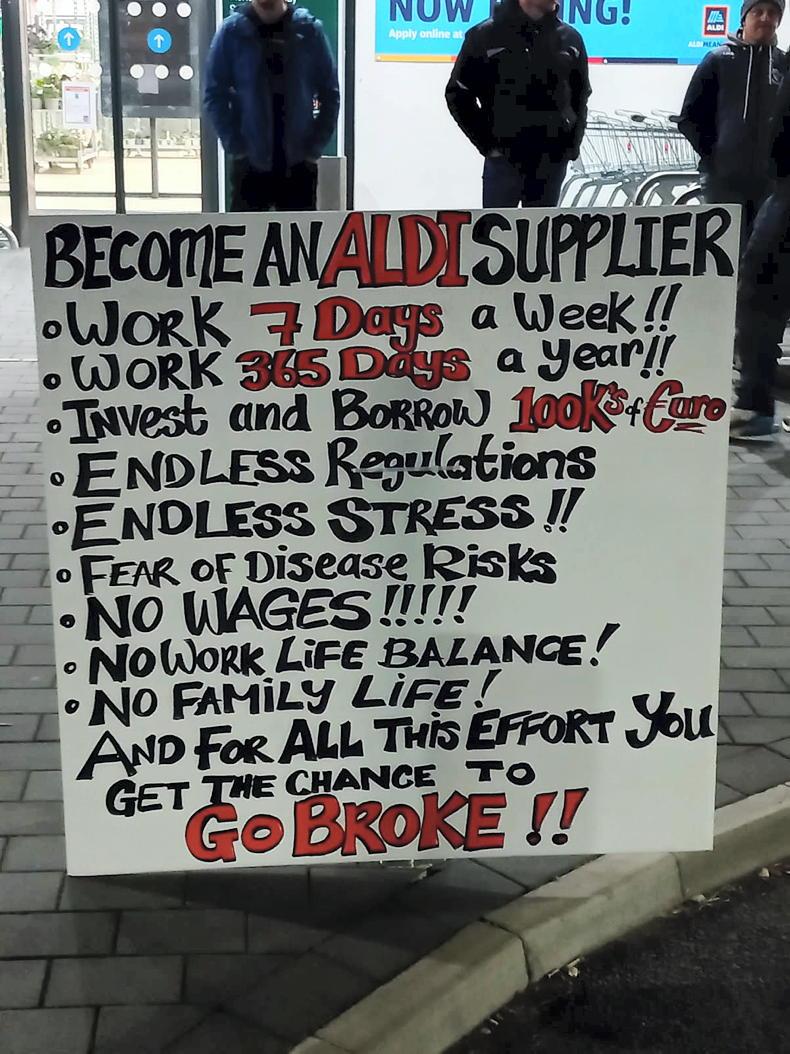 NOW
NG!
Apply online at
ALDI
BECOME AN ALDI SUPPLIER
WORK 7 Days a Week!!
WORK 365 Days a year!!
Invest and BORROW 100K's of Euro
ENDLESS Regulations
ENDLESS STRESS!!
FEAR OF Disease Risks
NO WAGES!!!!!
NO WORK LiFE BALANCE!
NO FAMiLY LiFE!
AND FOR ALL THiS EFFORT YOU
GET THE CHANCE TO
GO BROKE!!